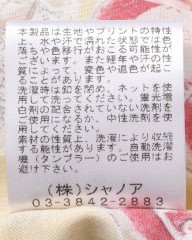 本製品は生地やプリントの特性
上、水や汗で濡れた状態では色
落ちや色移りがおこる可能性が
ございます。また経年や汗の性
質によって、変色や退色が起こ
る場合がございます。
洗濯時は釦を閉め、ネットを使
用して洗ってください。蛍光増
白剤の配合されていない洗剤を
ご使用になるか、中性洗剤をご
使用ください。
素材の性質上、洗濯により収縮
する可能性があります。自動洗濯
機(タンブラー)のご使用はお
避け下さい。
(株)シャノア
03-3842-2883